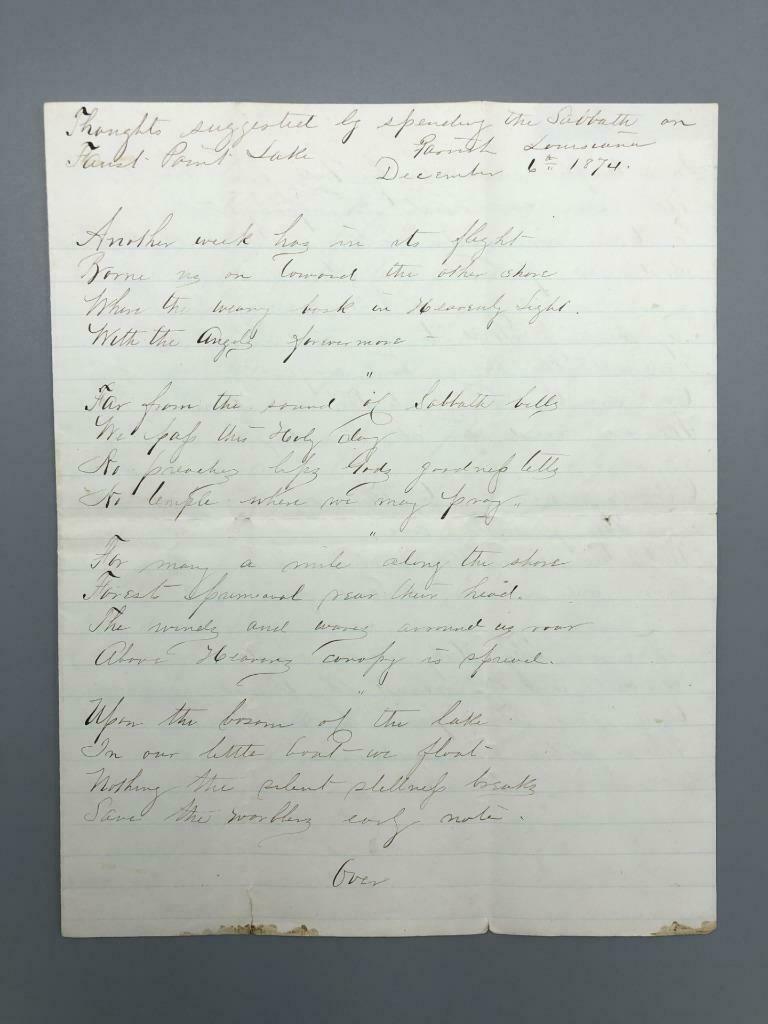 Thoughts suggested by spending the Sabbath on
Faust Point Lake Parrish Louisiana
December 6th 1874.
Another week has in its flight
Borne us on Toward the other shore
Where the weary bask in Heavenly Light.
With the Angels forevermore -
"
Far from the sound of Sabbath bells
We pass this Holy day
No preachers lips Gods goodness tells
No temple where we may pray.
"
For many a mile along the shore
Forests primeval rear their head.
The winds and waves arround us roar
Above Heavens canopy is spread.
"
Upon the bosom of the lake
In our little boat we float
Nothing the silent stillness breaks
Save the warblers early note.
Over